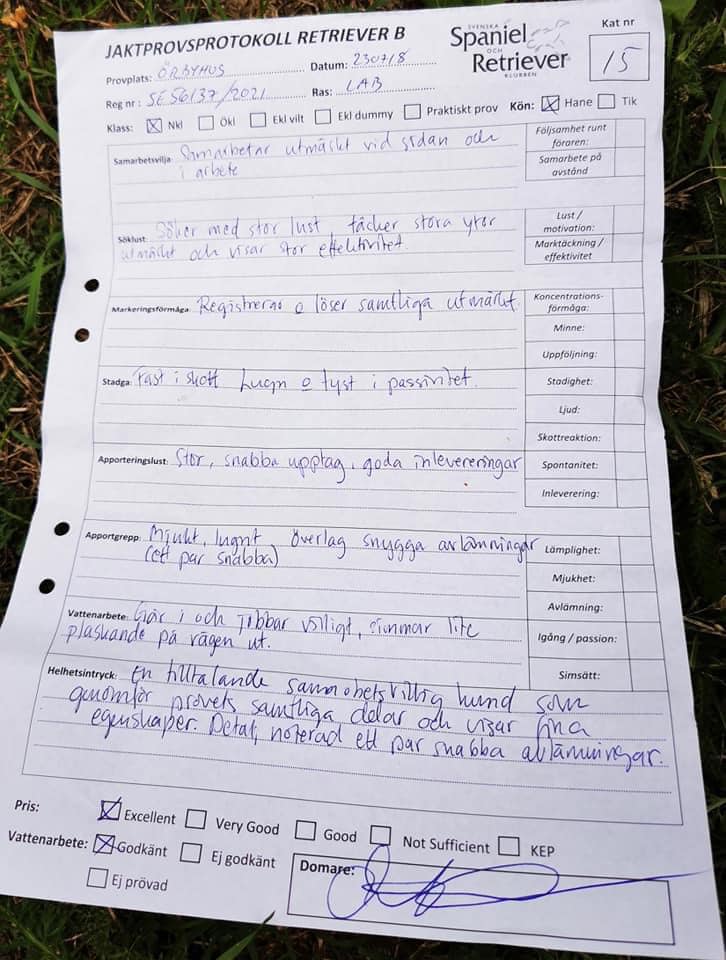 JAKTPROVSPROTOKOLL RETRIEVER B
SVENSKA
Spaniel
OCH
Retriever
KLUBBEN
Kat nr
15
Provplats: ÖRBYHUS Datum: 230718
Reg nr: SE56137/2021 Ras: LAB
Klass: ☒ Nkl ☐ Ökl ☐ Ekl vilt ☐ Ekl dummy ☐ Praktiskt prov Kön: ☒ Hane ☐ Tik
Samarbetsvilja: Samarbetar utmäskt vid sidan och
i arbete
Följsamhet runt
föraren:
Samarbete på
avstånd
Söklust: Söker med stor lust, täcker stora ytor
utmärkt och visar stor effektivitet.
Lust /
motivation:
Marktäckning /
effektivitet
Markeringsförmåga: Registrerar o löser samtliga utmärkt.
Koncentrations-
förmåga:
Minne:
Uppföljning:
Stadga: Fast i skott Lugn o tyst i passivitet.
Stadighet:
Ljud:
Skottreaktion:
Apporteringslust: Stor, snabba upptag, goda inlevereringar
Spontanitet:
Inleverering:
Apportgrepp: Mjukt, lugnt, överlag snygga avlämningar
(ett par snabba)
Lämplighet:
Mjukhet:
Avlämning:
Vattenarbete: Går i och jobbar villigt, simmar lite
plaskande på vägen ut.
Igång / passion:
Simsätt:
Helhetsintryck: En tilltalande samarbetsvillig hund som
genomför provets samtliga delar och visar fina
egenskaper. Detalj, noterad ett par snabba avlämningar.
Pris: ☒ Excellent ☐ Very Good ☐ Good ☐ Not Sufficient ☐ KEP
Vattenarbete: ☒ Godkänt ☐ Ej godkänt
☐ Ej prövad
Domare: